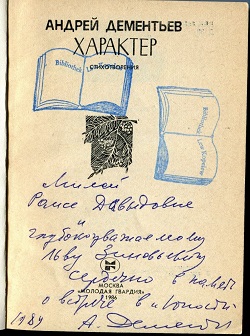 АНДРЕЙ ДЕМЕНТЬЕВ
ХАРАКТЕР
СТИХОТВОРЕНИЯ
Bibliothek
Милой
Раисе Давыдовне
и
глубокоуважаемому
Льву Зиновьевичу
сердечно в память
о встрече в юности
МОСКВА
«МОЛОДАЯ ГВАРДИЯ»
1986
А. Дементьев